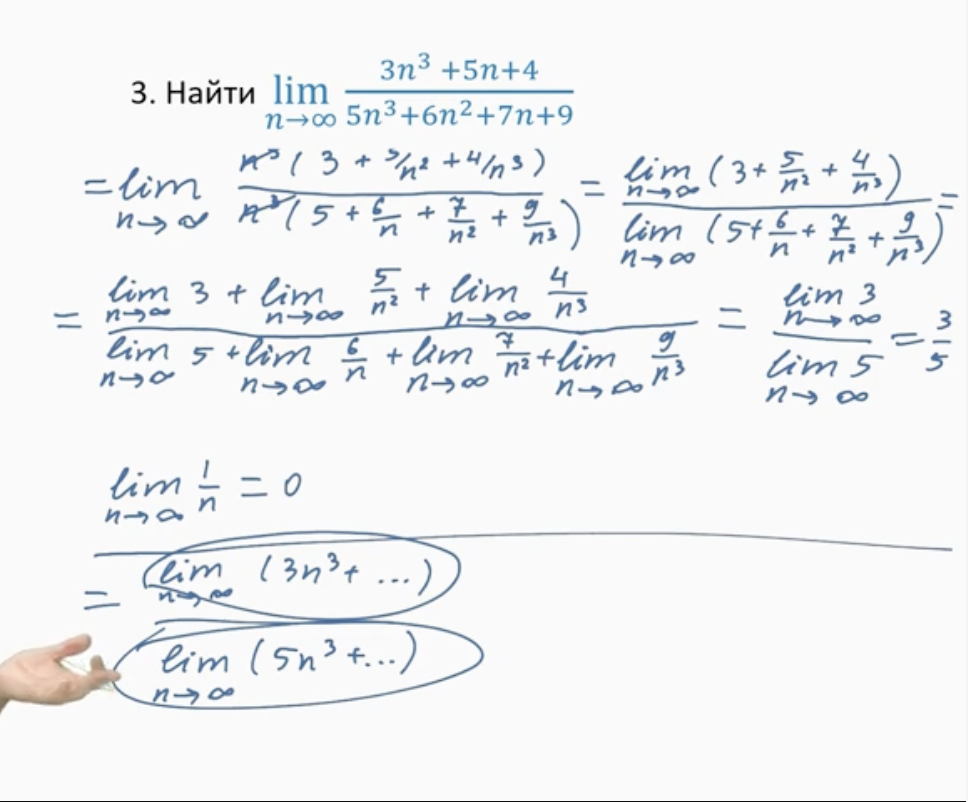 3. Найти lim n→∞ (3n³ +5n+4)/(5n³+6n²+7n+9)
= lim n→∞ n³(3 + 5/n² + 4/n³)/n³(5 + 6/n + 7/n² + 9/n³) = lim n→∞ (3 + 5/n² + 4/n³)/lim n→∞ (5 + 6/n + 7/n² + 9/n³) =
= (lim n→∞ 3 + lim n→∞ 5/n² + lim n→∞ 4/n³)/(lim n→∞ 5 + lim n→∞ 6/n + lim n→∞ 7/n² + lim n→∞ 9/n³) = lim n→∞ 3/lim n→∞ 5 = 3/5
lim n→∞ 1/n = 0
= lim n→∞ (3n³ + ...)/lim n→∞ (5n³ + ...)